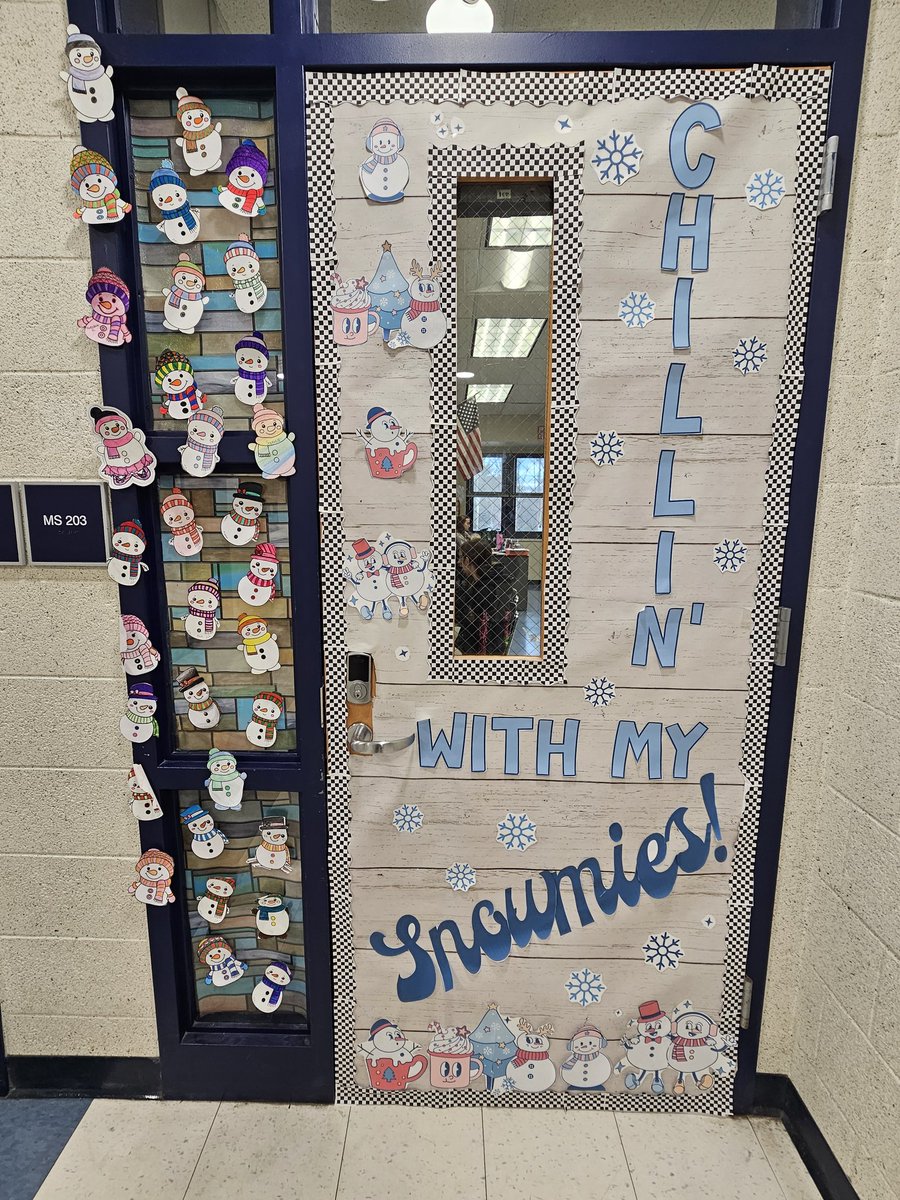 CHILLIN'
WITH MY
Snowmies!
MS 203